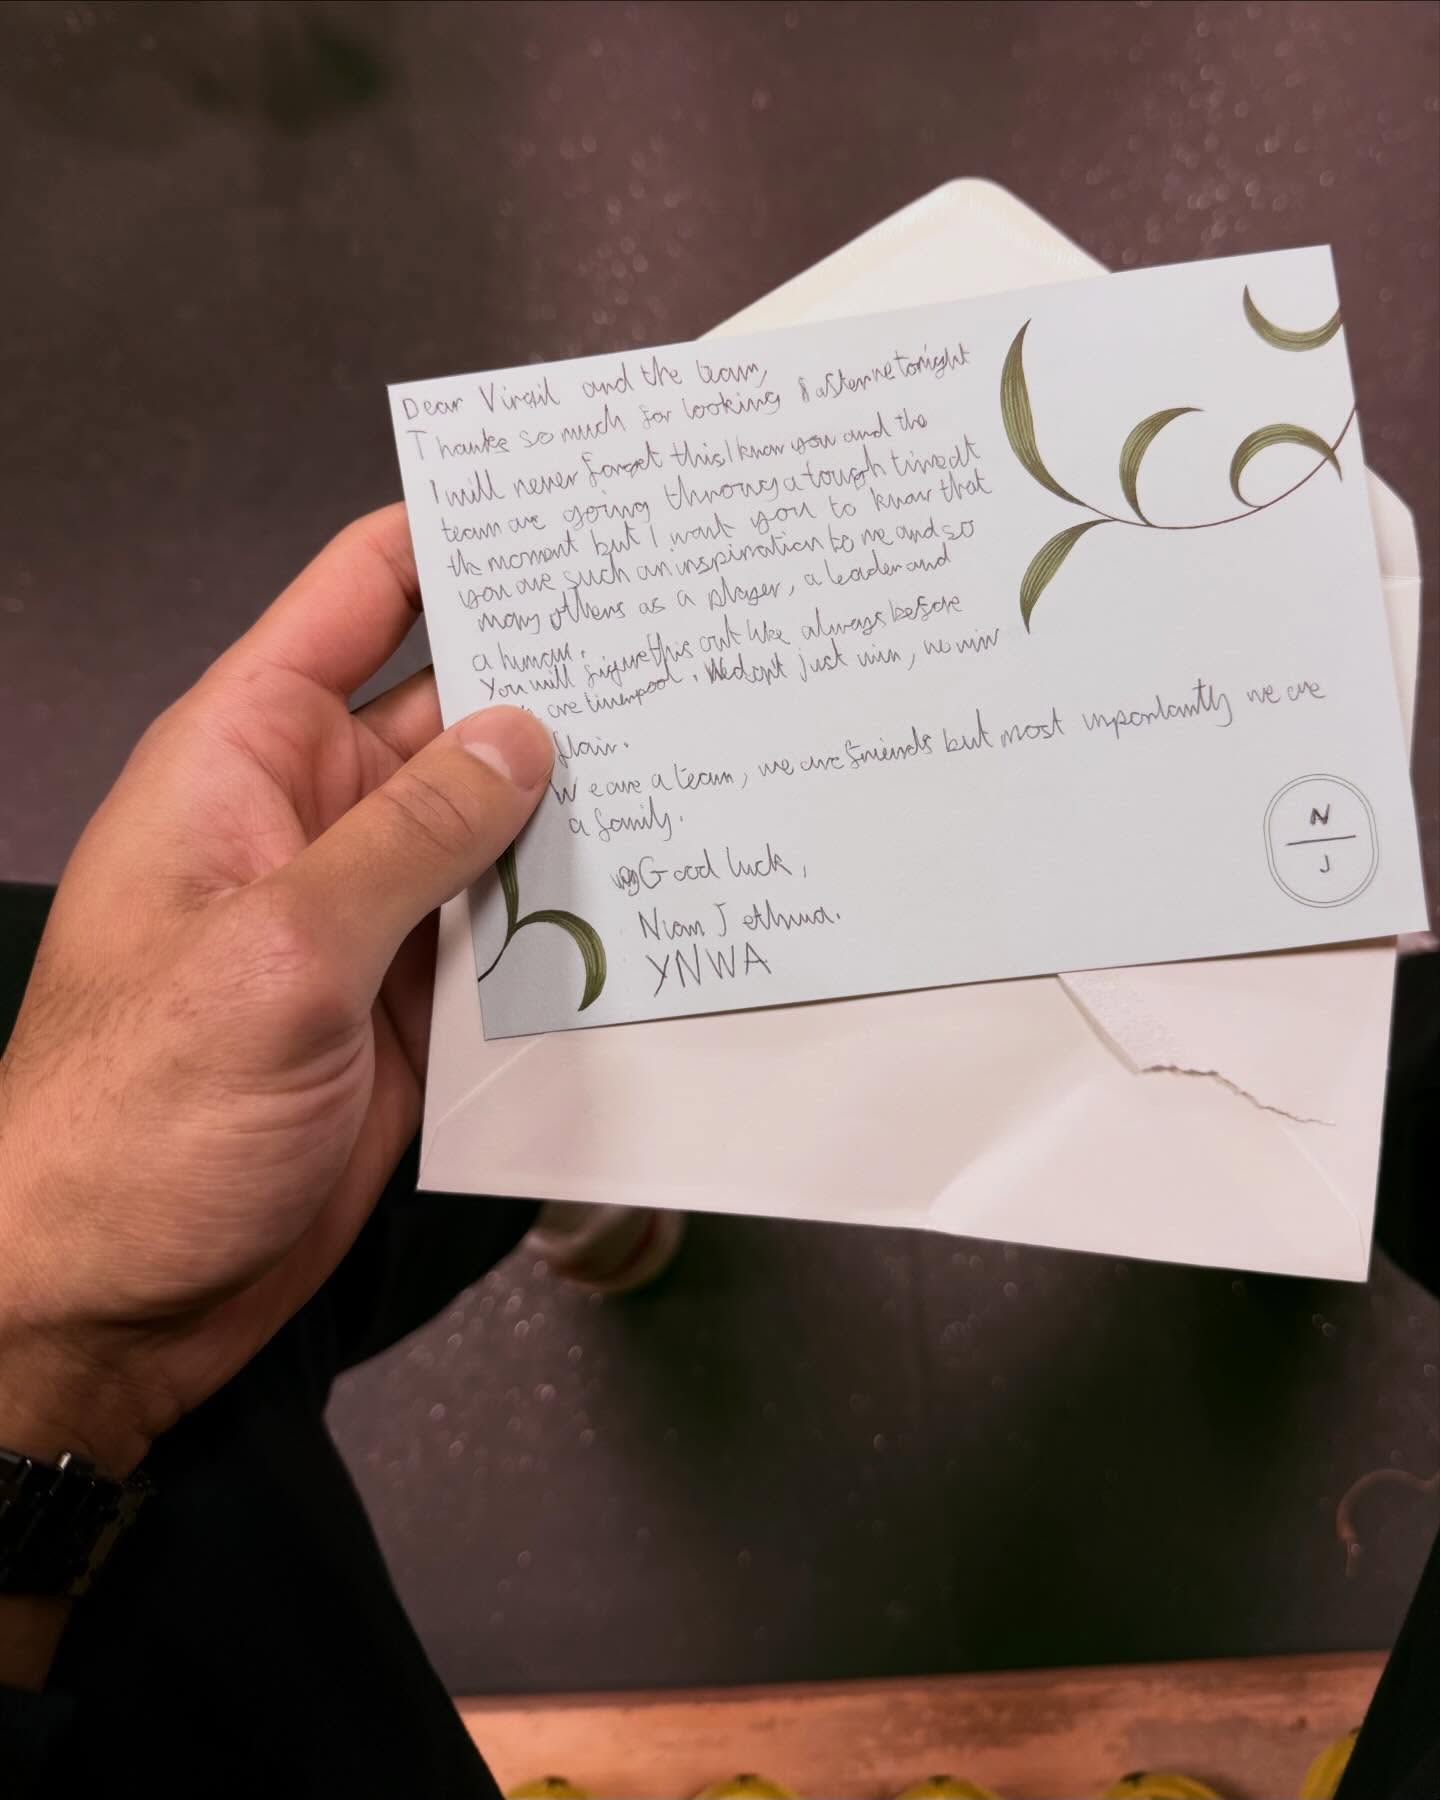 Dear Virgil and the team,
Thanks so much for looking after me tonight
I will never forget this I know you and the
team are going through a tough time at
the moment but I want you to know that
you are such an inspiration to me and so
many others as a player, a leader and
a human.
You will figure this out like always before
are Liverpool. We don't just win, we win
flair.
We are a team, we are friends but most importantly we are
a family.
Good luck,
Nian Jethwa.
YNWA
N
J